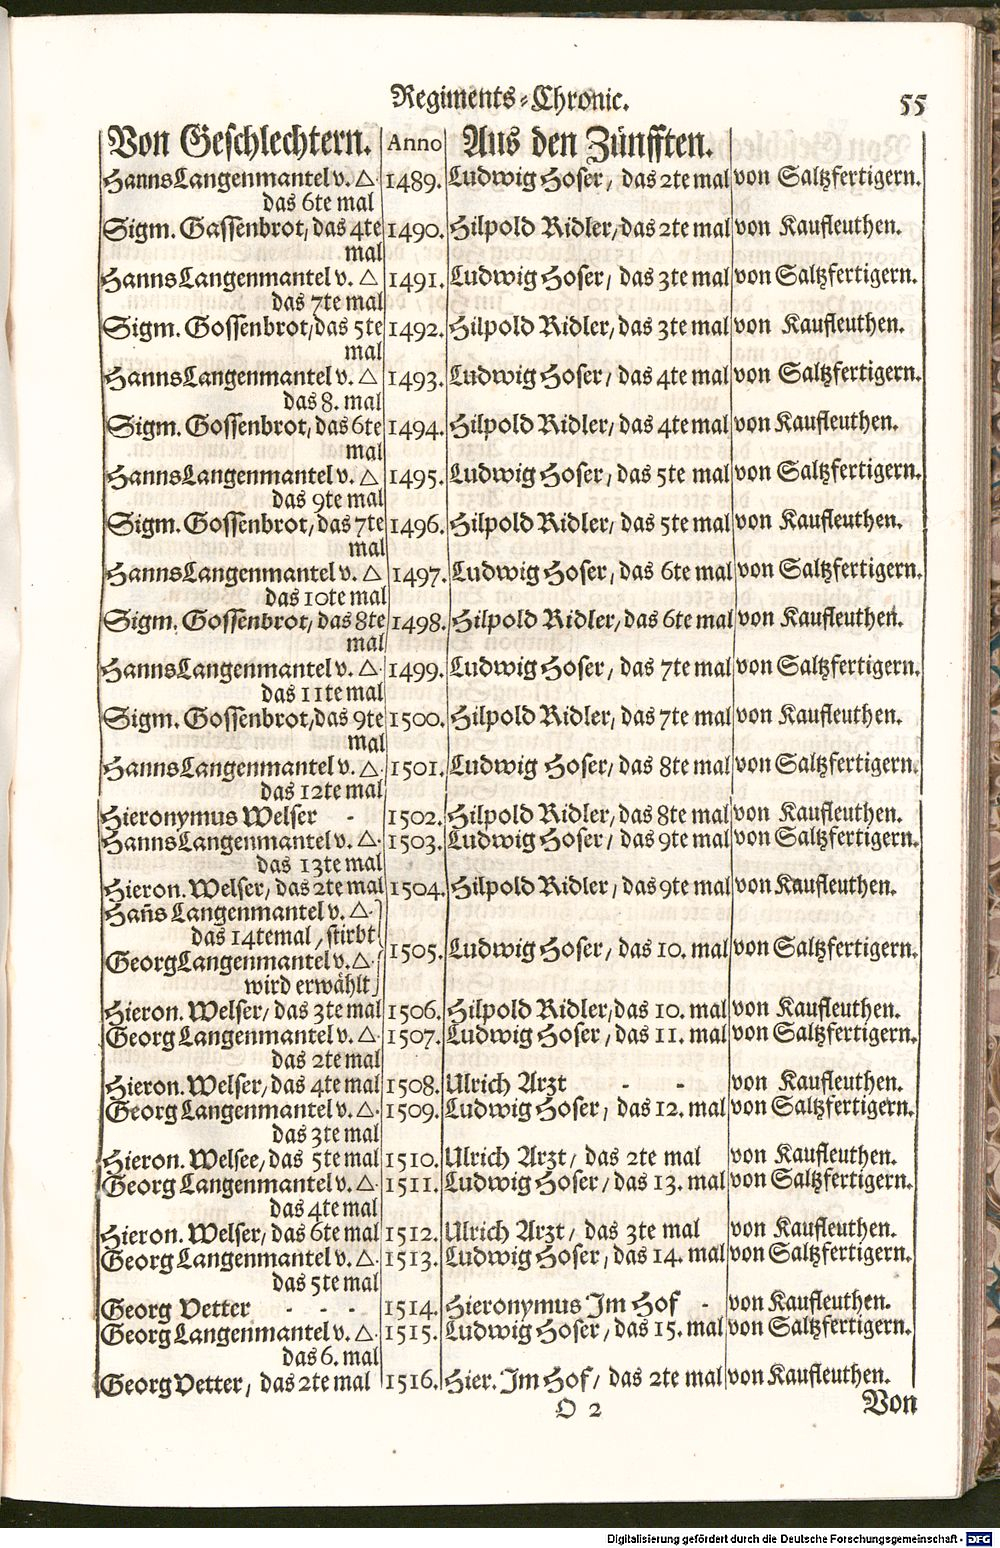 Regiments-Chronic. 55
Von Geschlechtern. Anno Aus den Zünfften.
Hanns Langenmantel v. △ 1489. Ludwig Hoser, das 2te mal von Saltzfertigern.
das 6te mal
Sigm. Gassenbrot, das 4te 1490. Hilpold Ridler, das 2te mal von Kaufleuthen.
mal
Hanns Langenmantel v. △ 1491. Ludwig Hoser, das 3te mal von Saltzfertigern.
das 7te mal
Sigm. Gossenbrot, das 5te 1492. Hilpold Ridler, das 3te mal von Kaufleuthen.
mal
Hanns Langenmantel v. △ 1493. Ludwig Hoser, das 4te mal von Saltzfertigern.
das 8. mal
Sigm. Gossenbrot, das 6te 1494. Hilpold Ridler, das 4te mal von Kaufleuthen.
mal
Hanns Langenmantel v. △ 1495. Ludwig Hoser, das 5te mal von Saltzfertigern.
das 9te mal
Sigm. Gossenbrot, das 7te 1496. Hilpold Ridler, das 5te mal von Kaufleuthen.
mal
Hanns Langenmantel v. △ 1497. Ludwig Hoser, das 6te mal von Saltzfertigern.
das 10te mal
Sigm. Gossenbrot, das 8te 1498. Hilpold Ridler, das 6te mal von Kaufleuthen.
mal
Hanns Langenmantel v. △. 1499. Ludwig Hoser, das 7te mal von Saltzfertigern.
das 11te mal
Sigm. Gossenbrot, das 9te 1500. Hilpold Ridler, das 7te mal von Kaufleuthen.
mal
Hanns Langenmantel v. △. 1501. Ludwig Hoser, das 8te mal von Saltzfertigern.
das 12te mal
Hieronymus Welser - 1502. Hilpold Ridler, das 8te mal von Kaufleuthen.
Hanns Langenmantel v. △. 1503. Ludwig Hoser, das 9te mal von Saltzfertigern.
das 13te mal
Hieron. Welser, das 2te mal 1504. Hilpold Ridler, das 9te mal von Kaufleuthen.
Hañs Langenmantel v. △.
das 14te mal, stirbt
1505. Ludwig Hoser, das 10. mal von Saltzfertigern.
Georg Langenmantel v. △.
wird erwählt
Hieron. Welser, das 3te mal 1506. Hilpold Ridler, das 10. mal von Kaufleuthen.
Georg Langenmantel v. △. 1507. Ludwig Hoser, das 11. mal von Saltzfertigern.
das 2te mal
Hieron. Welser, das 4te mal 1508. Ulrich Arzt - - von Kaufleuthen.
Georg Langenmantel v. △. 1509. Ludwig Hoser, das 12. mal von Saltzfertigern.
das 3te mal
Hieron. Welsee, das 5te mal 1510. Ulrich Arzt, das 2te mal von Kaufleuthen.
Georg Langenmantel v. △. 1511. Ludwig Hoser, das 13. mal von Saltzfertigern.
das 4te mal
Hieron. Welser, das 6te mal 1512. Ulrich Arzt, das 3te mal von Kaufleuthen.
Georg Langenmantel v. △. 1513. Ludwig Hoser, das 14. mal von Saltzfertigern.
das 5te mal
Georg Vetter - - - 1514. Hieronymus Im Hof - von Kaufleuthen.
Georg Langenmantel v. △. 1515. Ludwig Hoser, das 15. mal von Saltzfertigern.
das 6. mal
Georg Vetter, das 2te mal 1516. Hier. Im Hof, das 2te mal von Kaufleuthen.
O 2 Von
Digitalisierung gefördert durch die Deutsche Forschungsgemeinschaft - DFG